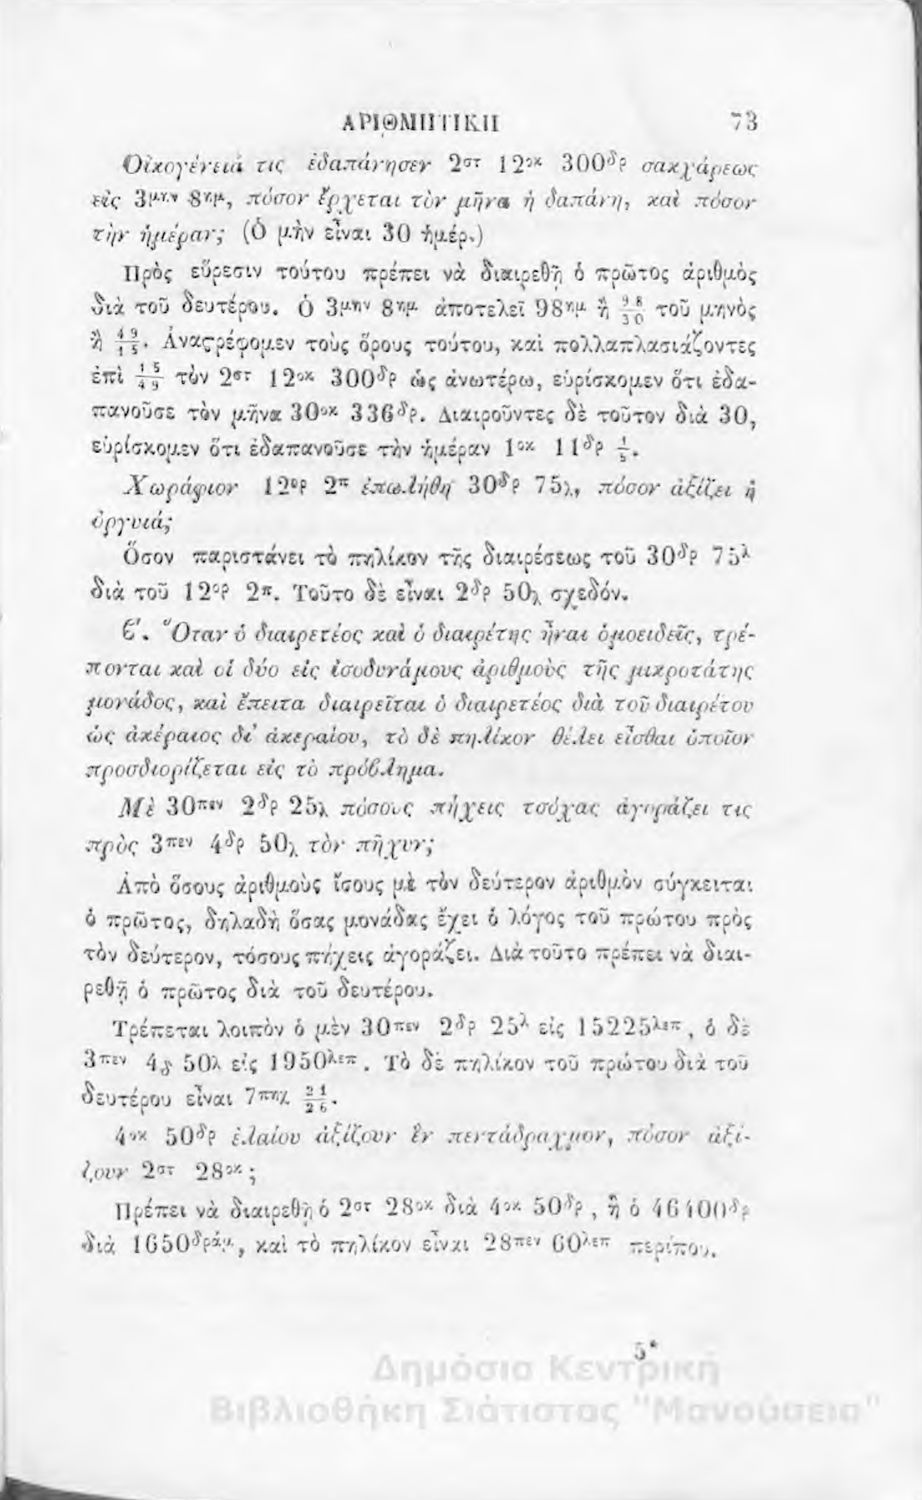 ΑΡΙΘΜΗΤΙΚΗ 73
Οἰκογένειά τις ἐδαπάνησεν 2στ 12οκ 300δρ σακχάρεως
εἰς 3μην 8ημ, πόσον ἔρχεται τὸν μῆνα ἡ δαπάνη, καὶ πόσον
τὴν ἡμέραν; (Ὁ μὴν εἶναι 30 ἡμέρ.)
Πρὸς εὕρεσιν τούτου πρέπει νὰ διαιρεθῇ ὁ πρῶτος ἀριθμὸς
διὰ τοῦ δευτέρου. Ὁ 3μην 8ημ ἀποτελεῖ 98ημ ἢ 98/30 τοῦ μηνὸς
ἢ 49/15. Ἀναστρέφομεν τοὺς ὅρους τούτου, καὶ πολλαπλασιάζοντες
ἐπὶ 15/49 τὸν 2στ 12οκ 300δρ ὡς ἀνωτέρω, εὑρίσκομεν ὅτι ἐδα-
πανοῦσε τὸν μῆνα 30οκ 336δρ. Διαιροῦντες δὲ τοῦτον διὰ 30,
εὑρίσκομεν ὅτι ἐδαπανοῦσε τὴν ἡμέραν 1οκ 11δρ 1/5.
Χωράφιον 12ορ 2π ἐπωλήθη 30δρ 75λ, πόσον ἀξίζει ἡ
ὀργυιά;
Ὅσον παριστάνει τὸ πηλίκον τῆς διαιρέσεως τοῦ 30δρ 75λ
διὰ τοῦ 12ορ 2π. Τοῦτο δὲ εἶναι 2δρ 50λ σχεδόν.
ϐ΄. Ὅταν ὁ διαιρετέος καὶ ὁ διαιρέτης ἦναι ὁμοειδεῖς, τρέ-
πονται καὶ οἱ δύο εἰς ἰσοδυνάμους ἀριθμοὺς τῆς μικροτάτης
μονάδος, καὶ ἔπειτα διαιρεῖται ὁ διαιρετέος διὰ τοῦ διαιρέτου
ὡς ἀκέραιος δι’ ἀκεραίου, τὸ δὲ πηλίκον θέλει εἶσθαι ὁποῖον
προσδιορίζεται εἰς τὸ πρόϐλημα.
Μὲ 30πεν 2δρ 25λ πόσους πήχεις τσόχας ἀγοράζει τις
πρὸς 3πεν 4δρ 50λ τὸν πῆχυν;
Ἀπὸ ὅσους ἀριθμοὺς ἴσους μὲ τὸν δεύτερον ἀριθμὸν σύγκειται
ὁ πρῶτος, δηλαδὴ ὅσας μονάδας ἔχει ὁ λόγος τοῦ πρώτου πρὸς
τὸν δεύτερον, τόσους πήχεις ἀγοράζει. Διὰ τοῦτο πρέπει νὰ διαι-
ρεθῇ ὁ πρῶτος διὰ τοῦ δευτέρου.
Τρέπεται λοιπὸν ὁ μὲν 30πεν 2δρ 25λ εἰς 15225λεπ, ὁ δὲ
3πεν 4δ 50λ εἰς 1950λεπ. Τὸ δὲ πηλίκον τοῦ πρώτου διὰ τοῦ
δευτέρου εἶναι 7πηχ 21/26.
4οκ 50δρ ἐλαίου ἀξίζουν ἓν πεντάδραχμον, πόσον ἀξί-
ζουν 2στ 28οκ;
Πρέπει νὰ διαιρεθῇ ὁ 2στ 28οκ διὰ 4οκ 50δρ, ἢ ὁ 46400δρ
διὰ 1650δράμ, καὶ τὸ πηλίκον εἶναι 28πεν 60λεπ περίπου.
5*
Δημόσια Κεντρική
Βιβλιοθήκη Σιάτιστας "Μανούσεια"